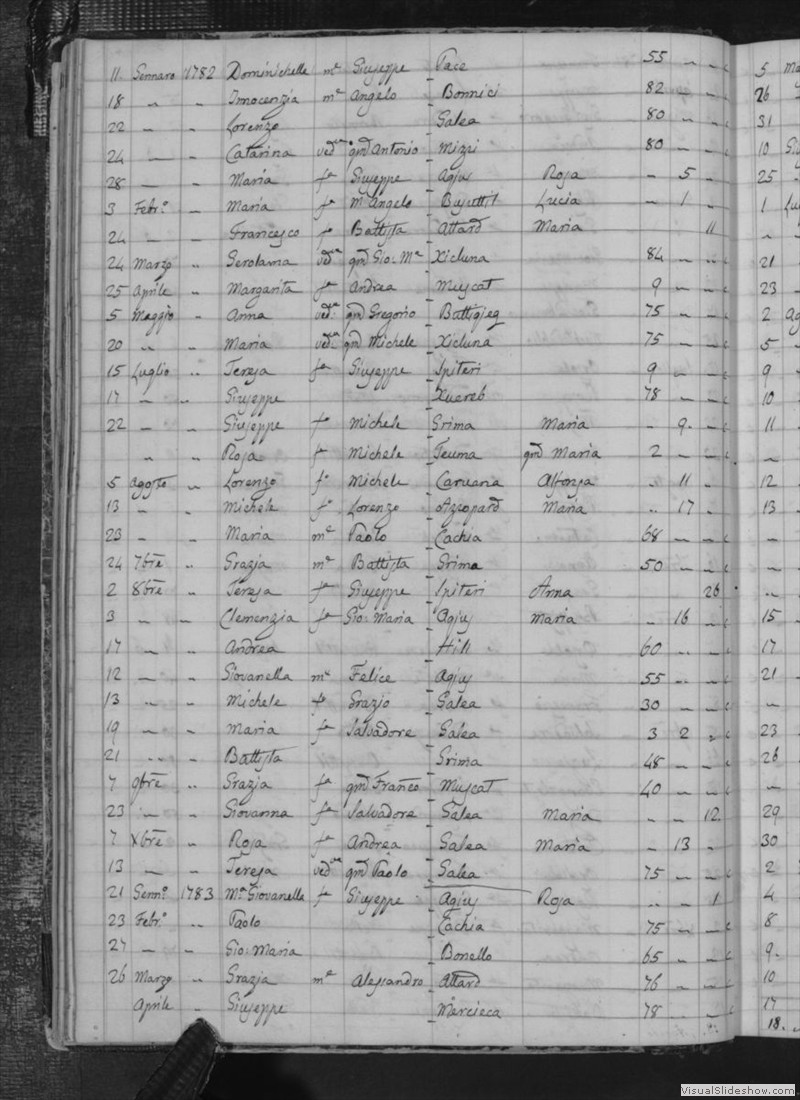 11 Gennaro 1782 Dominichella mᵉ Giuseppe Pace 55 " " 5
18 " " Innocenzia mᵉ Angelo Bonnici 82 " " 26
22 " " Lorenzo Galea 80 " " 31
24 " " Catarina vedᵛᵃ qm̄ Antonio Mizzi 80 " " 10
28 " " Maria fᵃ Giuseppe Agius Rosa " 5 " 25
3 Febrᵒ " Maria fᵃ Mᵒ Angelo Busuttil Lucia " 1 " 1
24 " " Francesco fᵒ Battista Attard Maria 11 "
24 Marzo " Gerolama vedᵛᵃ qm̄ Gio: Mᵃ Xicluna 84 " " 21
25 Aprile " Margarita fᵃ Andrea Muscat 9 " " 23
5 Maggio " Anna vedᵃ qm̄ Gregorio 75 " " 2
20 " " Maria vedᵃ qm̄ Michele Xicluna 75 " " 5
15 Luglio " Teresa fᵃ Giuseppe Spiteri 9 " " 9
17 " " Giuseppe Xuereb 78 " " 10
22 " " Giuseppe fᵒ Michele Grima Maria " 9 " 11
" " Rosa fᵃ Michele Teuma qm̄ Maria 2 " " "
5 Agosto " Lorenzo fᵒ Michele Caruana Alfonsa " 11 " 12
13 " " Michele fᵒ Lorenzo Azzopard Maria " 17 " 13
23 " " Maria mᵉ Paolo Cachia 68 " " "
24 7bre " Grazia mᵉ Battista Grima 50 " " "
2 8bre " Teresa fᵃ Giuseppe Spiteri Anna 26 "
3 " " Clemenzia fᵃ Gio: Maria Agius Maria " 16 " 15
17 " " Andrea Hili 60 " " 17
12 " " Giovanella mᵉ Felice Agius 55 " " 21
13 " " Michele fᵒ Grazio Galea 30 " " "
19 " " Maria fᵃ Salvadore Galea 3 2 " 23
21 " " Battista Grima 48 " " 26
7 9bre " Grazia fᵃ qm̄ Franco Muscat 40 " " "
23 " " Giovanna fᵃ Salvadore Galea Maria " " 12 29
7 Xbre " Rosa fᵃ Andrea Galea Maria " 13 " 30
13 " " Teresa vedᵛᵃ qm̄ Paolo Galea 75 " " 2
21 Gennᵒ 1783 Mᵃ Giovanella fᵃ Giuseppe Agius Rosa " " 1 4
23 Febrᵒ " Paolo Cachia 75 " " 8
27 " " Gio: Maria Bonello 65 " " 9
26 Marzo " Grazia mᵉ Alessandro Attard 76 " " 10
Aprile " Giuseppe Mercieca 78 " " 17
18.
VisualSlideshow.com